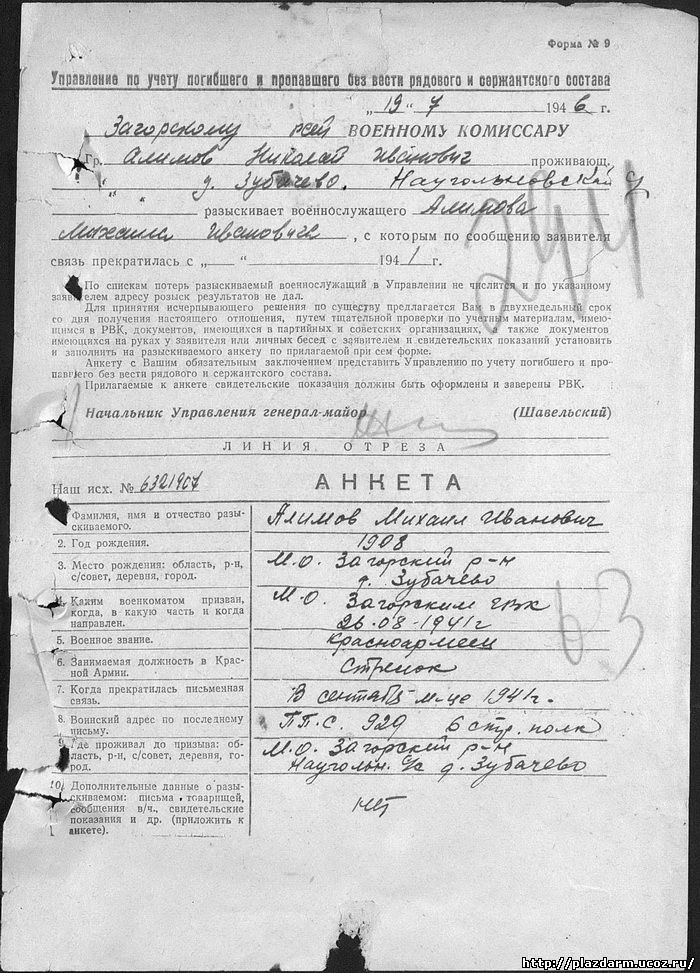 Форма № 9
Управление по учету погибшего и пропавшего без вести рядового и сержантского состава
„19“ 7 1946 г.
Загорскому ВОЕННОМУ КОМИССАРУ
Гр. Алимов Николай Иванович проживающ.
д. Зубачево. Наугольновский
разыскивает военнослужащего Алимова
Михаила Ивановича, с которым по сообщению заявителя
связь прекратилась с „ “ 1941 г.
По спискам потерь разыскиваемый военнослужащий в Управлении не числится и по указанному
заявителем адресу розыск результатов не дал.
Для принятия исчерпывающего решения по существу предлагается Вам в двухнедельный срок
со дня получения настоящего отношения, путем тщательной проверки по учетным материалам, имею-
щимся в РВК, документов, имеющихся в партийных и советских организациях, а также документов
имеющихся на руках у заявителя или личных бесед с заявителем и свидетельских показаний установить
и заполнить на разыскиваемого анкету по прилагаемой при сем форме.
Анкету с Вашим обязательным заключением представить Управлению по учету погибшего и про-
павшего без вести рядового и сержантского состава.
Прилагаемые к анкете свидетельские показания должны быть оформлены и заверены РВК.
Начальник Управления генерал-майор (Шавельский)
ЛИНИЯ ОТРЕЗА
Наш исх. № 6321907 АНКЕТА
Фамилия, имя и отчество разы-
скиваемого.
Алимов Михаил Иванович
2. Год рождения.
1908
3. Место рождения: область, р-н,
с/совет, деревня, город.
М.О. Загорский р-н
д. Зубачево
4. Каким военкоматом призван,
когда, в какую часть и когда
направлен.
М.О. Загорским гвк
26.08-1941г
5. Военное звание.
Красноармеец
6. Занимаемая должность в Крас-
ной Армии.
Стрелок
7. Когда прекратилась письменная
связь.
В сентябре м-це 1941г.
8. Воинский адрес по последнему
письму.
П.П.С. 929 6 стр. полк
9. Где проживал до призыва: об-
ласть, р-н, с/совет, деревня, го-
род.
М.О. Загорский р-н
Наугольн. с/с д. Зубачево
10. Дополнительные данные о разы-
скиваемом: письма товарищей,
сообщения в/ч., свидетельские
показания и др. (приложить к
анкете).
нет
63
http://plazdarm.ucoz.ru/